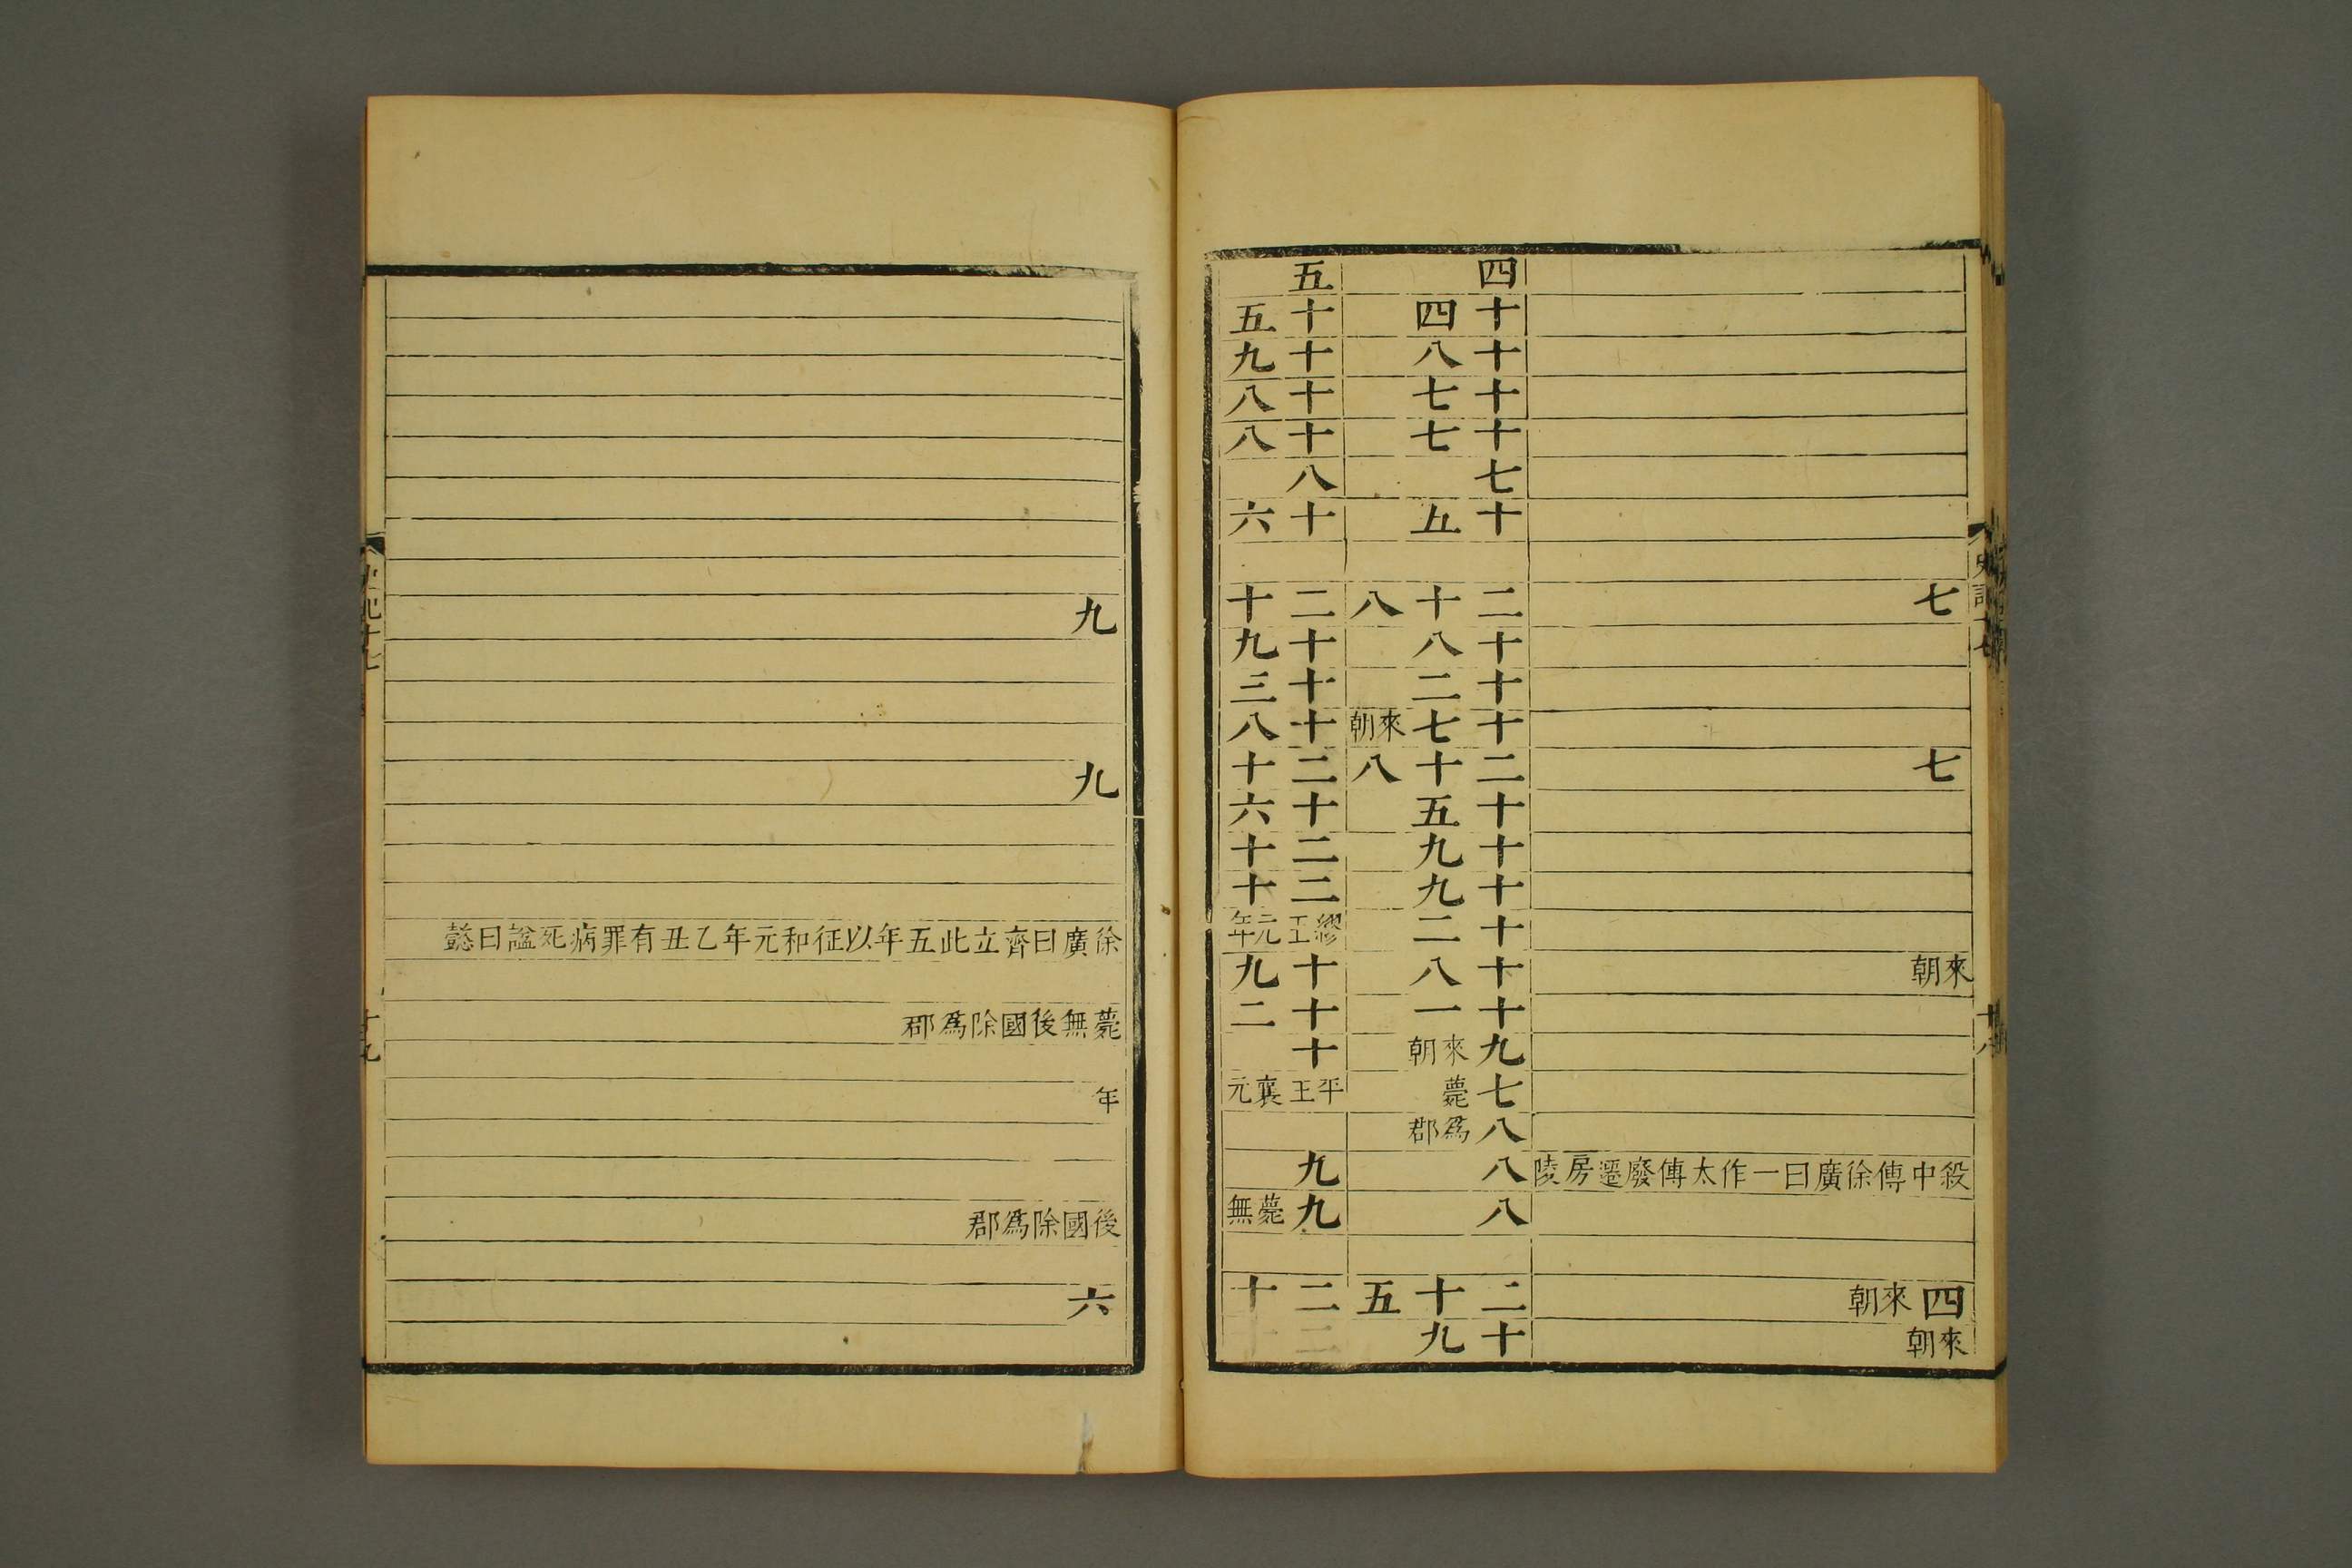 七
七
來朝
殺中傅徐廣曰一作太傅廢遷房陵
四來朝
來朝
四
十四
十八
十七
十七
七
十五
二十八
十八
十二
十七來朝
二十八
十五
十九
十九
十二
十八
十一
九來朝
七薨
八爲郡
八
八
二十五
十九
五
十五
十九
十八
十八
八
十六
二十
十九
十三
十八
二十
十六
二十
二十
繆王元年
十九
十二
十
平王襄元
九
九薨無
二十
二十
九
九
徐廣曰齊立此五年以征和元年乙丑有罪病死諡曰懿
薨無後國除爲郡
年
後國除爲郡
六
史記十七
十八
十九